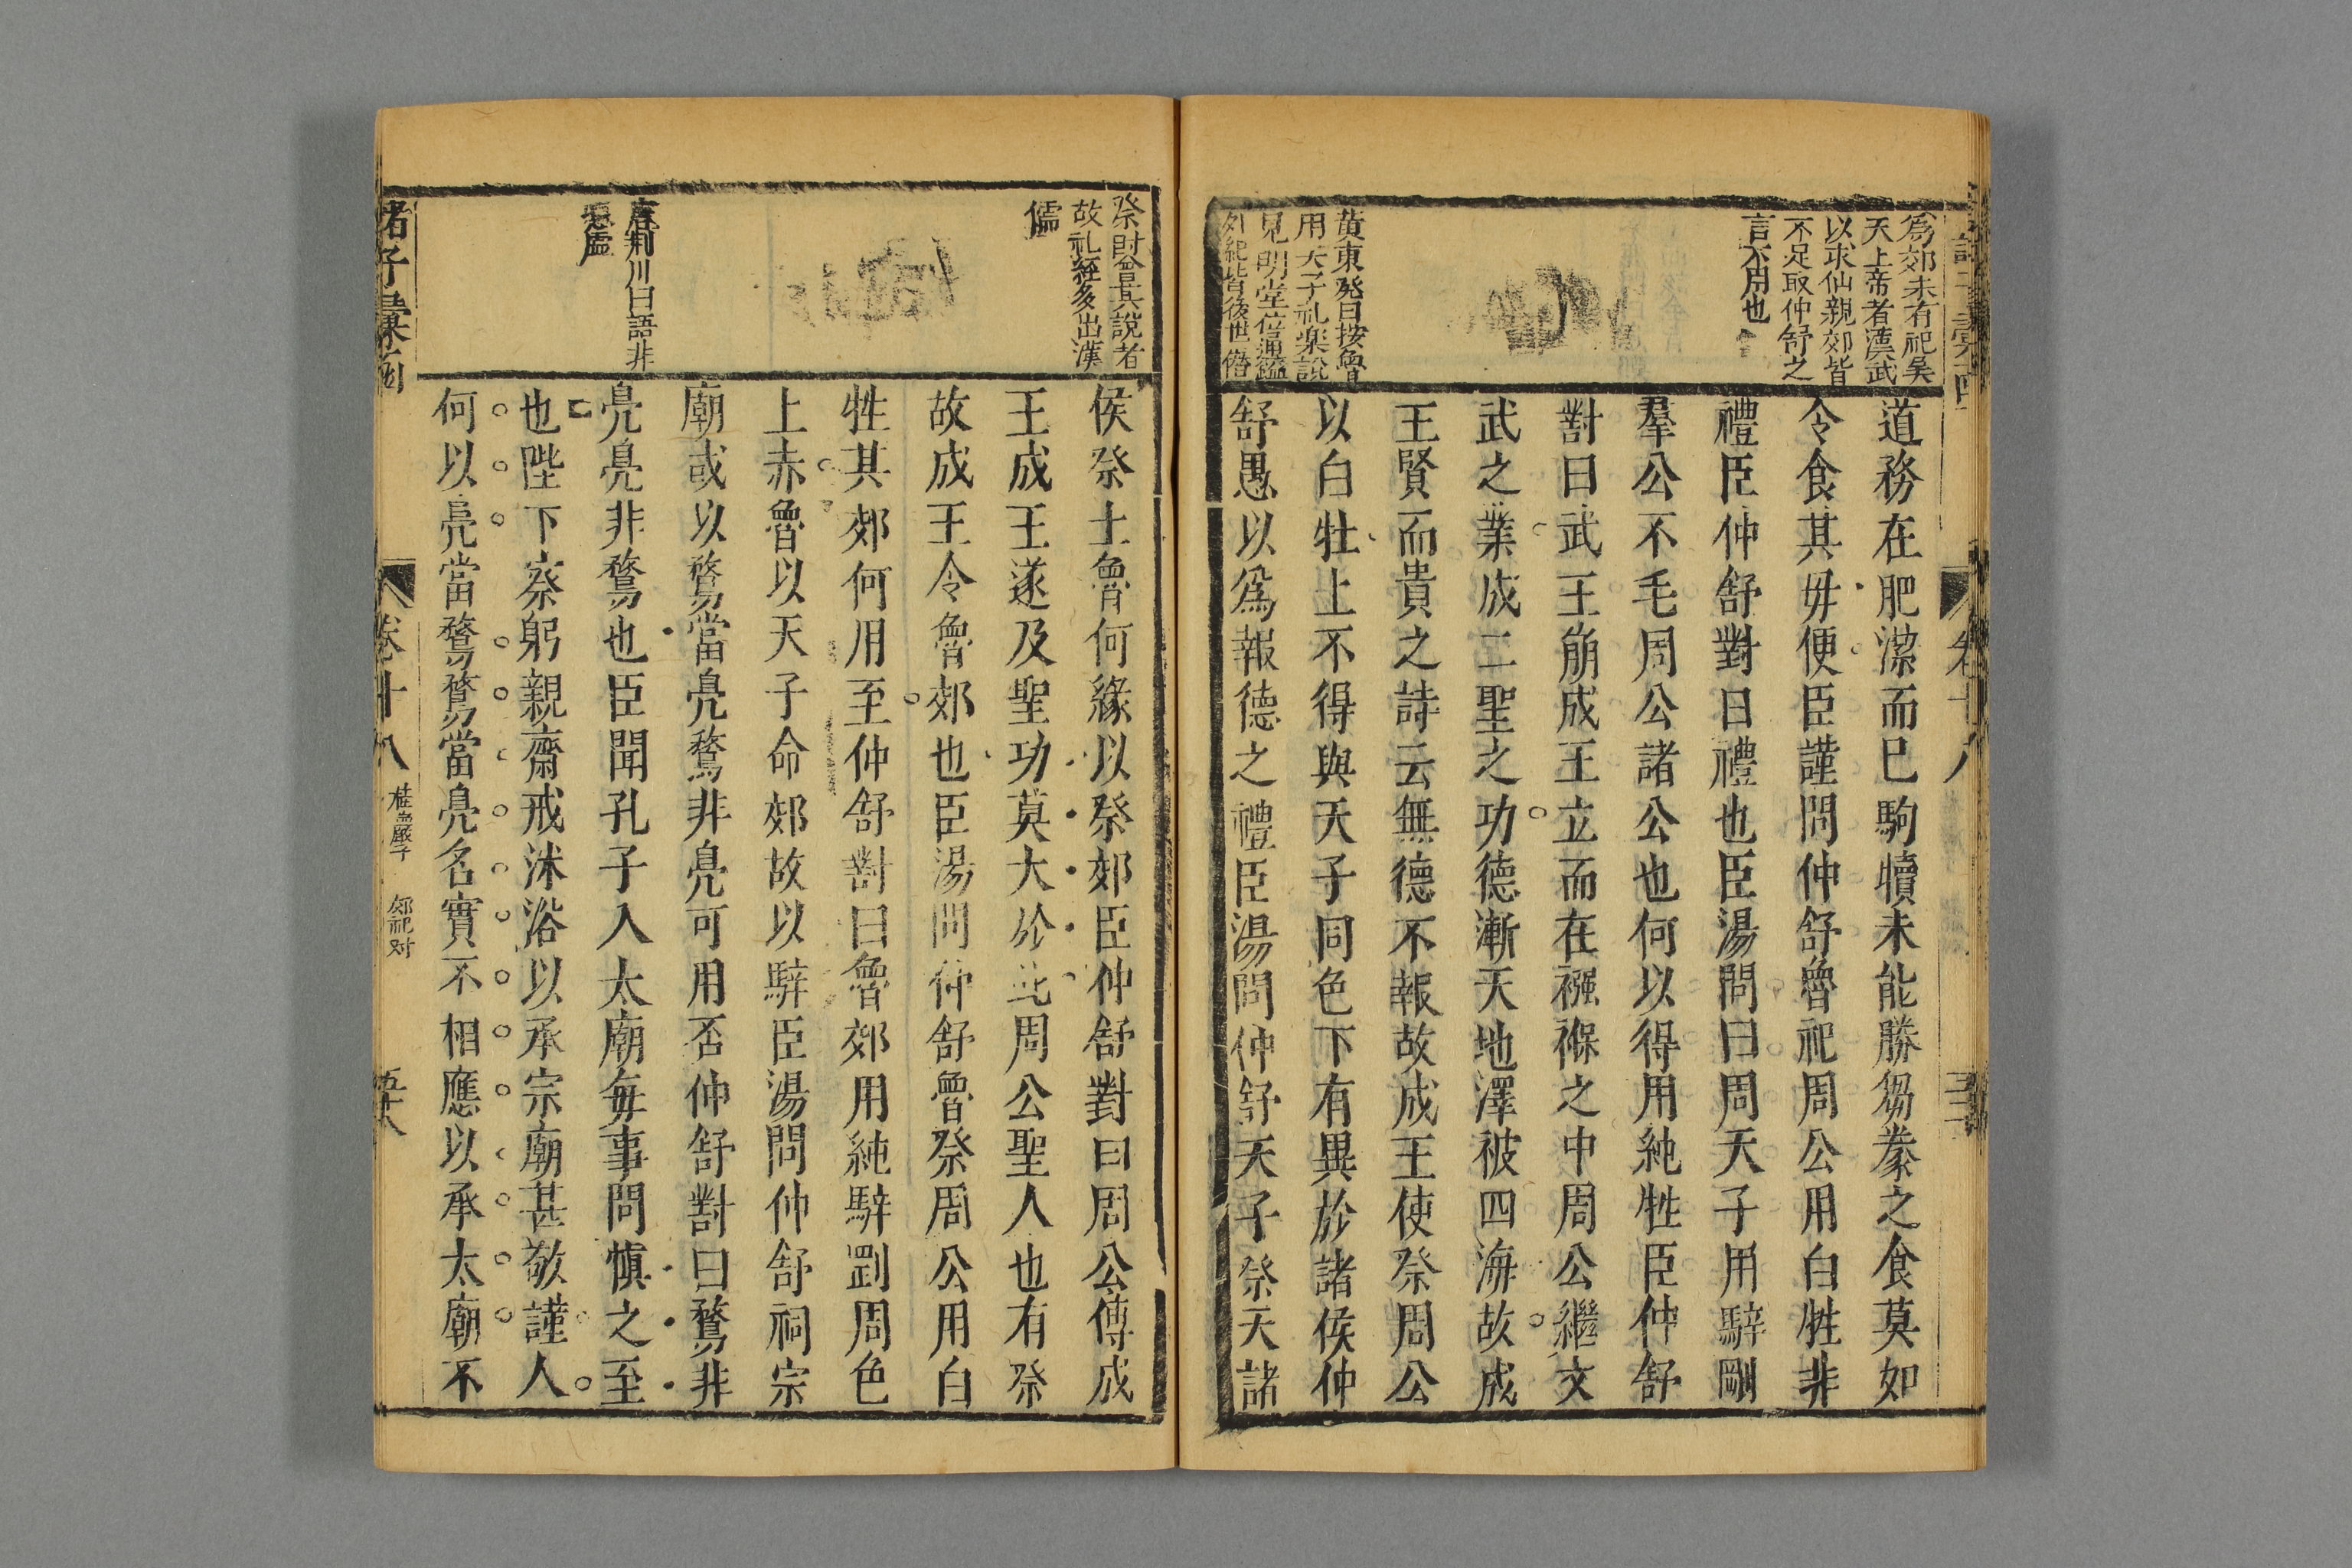 爲郊未有祀昊
天上帝者漢武
以求仙親郊皆
不足取仲舒之
言不用也
黄東發曰按魯
用天子礼楽說
見明堂位通鑑
外紀皆後世僭
道務在肥潔而巳駒犢未能勝芻豢之食莫如
令食其毋便臣謹問仲舒魯祀周公用白牲非
禮臣仲舒對曰禮也臣湯問曰周天子用騂剛
羣公不毛周公諸公也何以得用純牲臣仲舒
對曰武王崩成王立而在襁褓之中周公繼文
武之業成二聖之功德漸天地澤被四海故成
王賢而貴之詩云無德不報故成王使祭周公
以白牡上不得與天子同色下有異於諸侯仲
舒愚以爲報德之禮臣湯問仲舒天子祭天諸
卷十八
祭時曾其說者
故礼經多出漢
儒
唐荆川曰語非
侯祭土魯何緣以祭郊臣仲舒對曰周公傅成
王成王遂及聖功莫大於此周公聖人也有祭
故成王令魯郊也臣湯問仲舒魯祭周公用白
牲其郊何用至仲舒對曰魯郊用純騂剛周色
上赤魯以天子命郊故以騂臣湯問仲舒祠宗
廟或以鶩當鳧鶩非鳧可用否仲舒對曰鶩非
鳧鳧非鶩也臣聞孔子入太廟每事問愼之至
也陛下祭躬親齋戒沐浴以承宗廟甚敬謹人
何以鳧當鶩鶩當鳧名實不相應以承太廟不
諸子彙函
卷十八
桂巖子
郊祀対